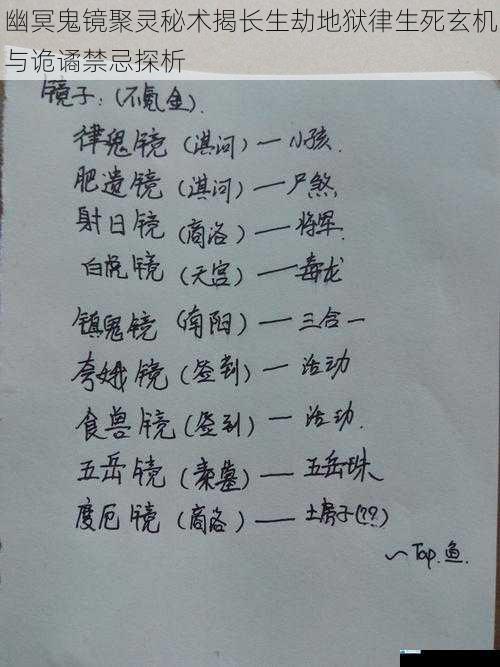 幽冥鬼镜聚灵秘术揭长生劫地狱律生死玄机
与诡谲禁忌探析
镜子：(不氪金).
律鬼镜(淇河)—小孩.
肥遗镜(淇河)—尸煞
射日镜(商洛)—将军.
白虎镜(天宫)—毒龙
镇鬼镜(南阳)—三合一
夸娥镜(签到)—活动
食兽镜(签到)—活动.
五岳镜(秦墓)—五岳珠
度厄镜(商洛)—土房子(??)
~Top.鱼.